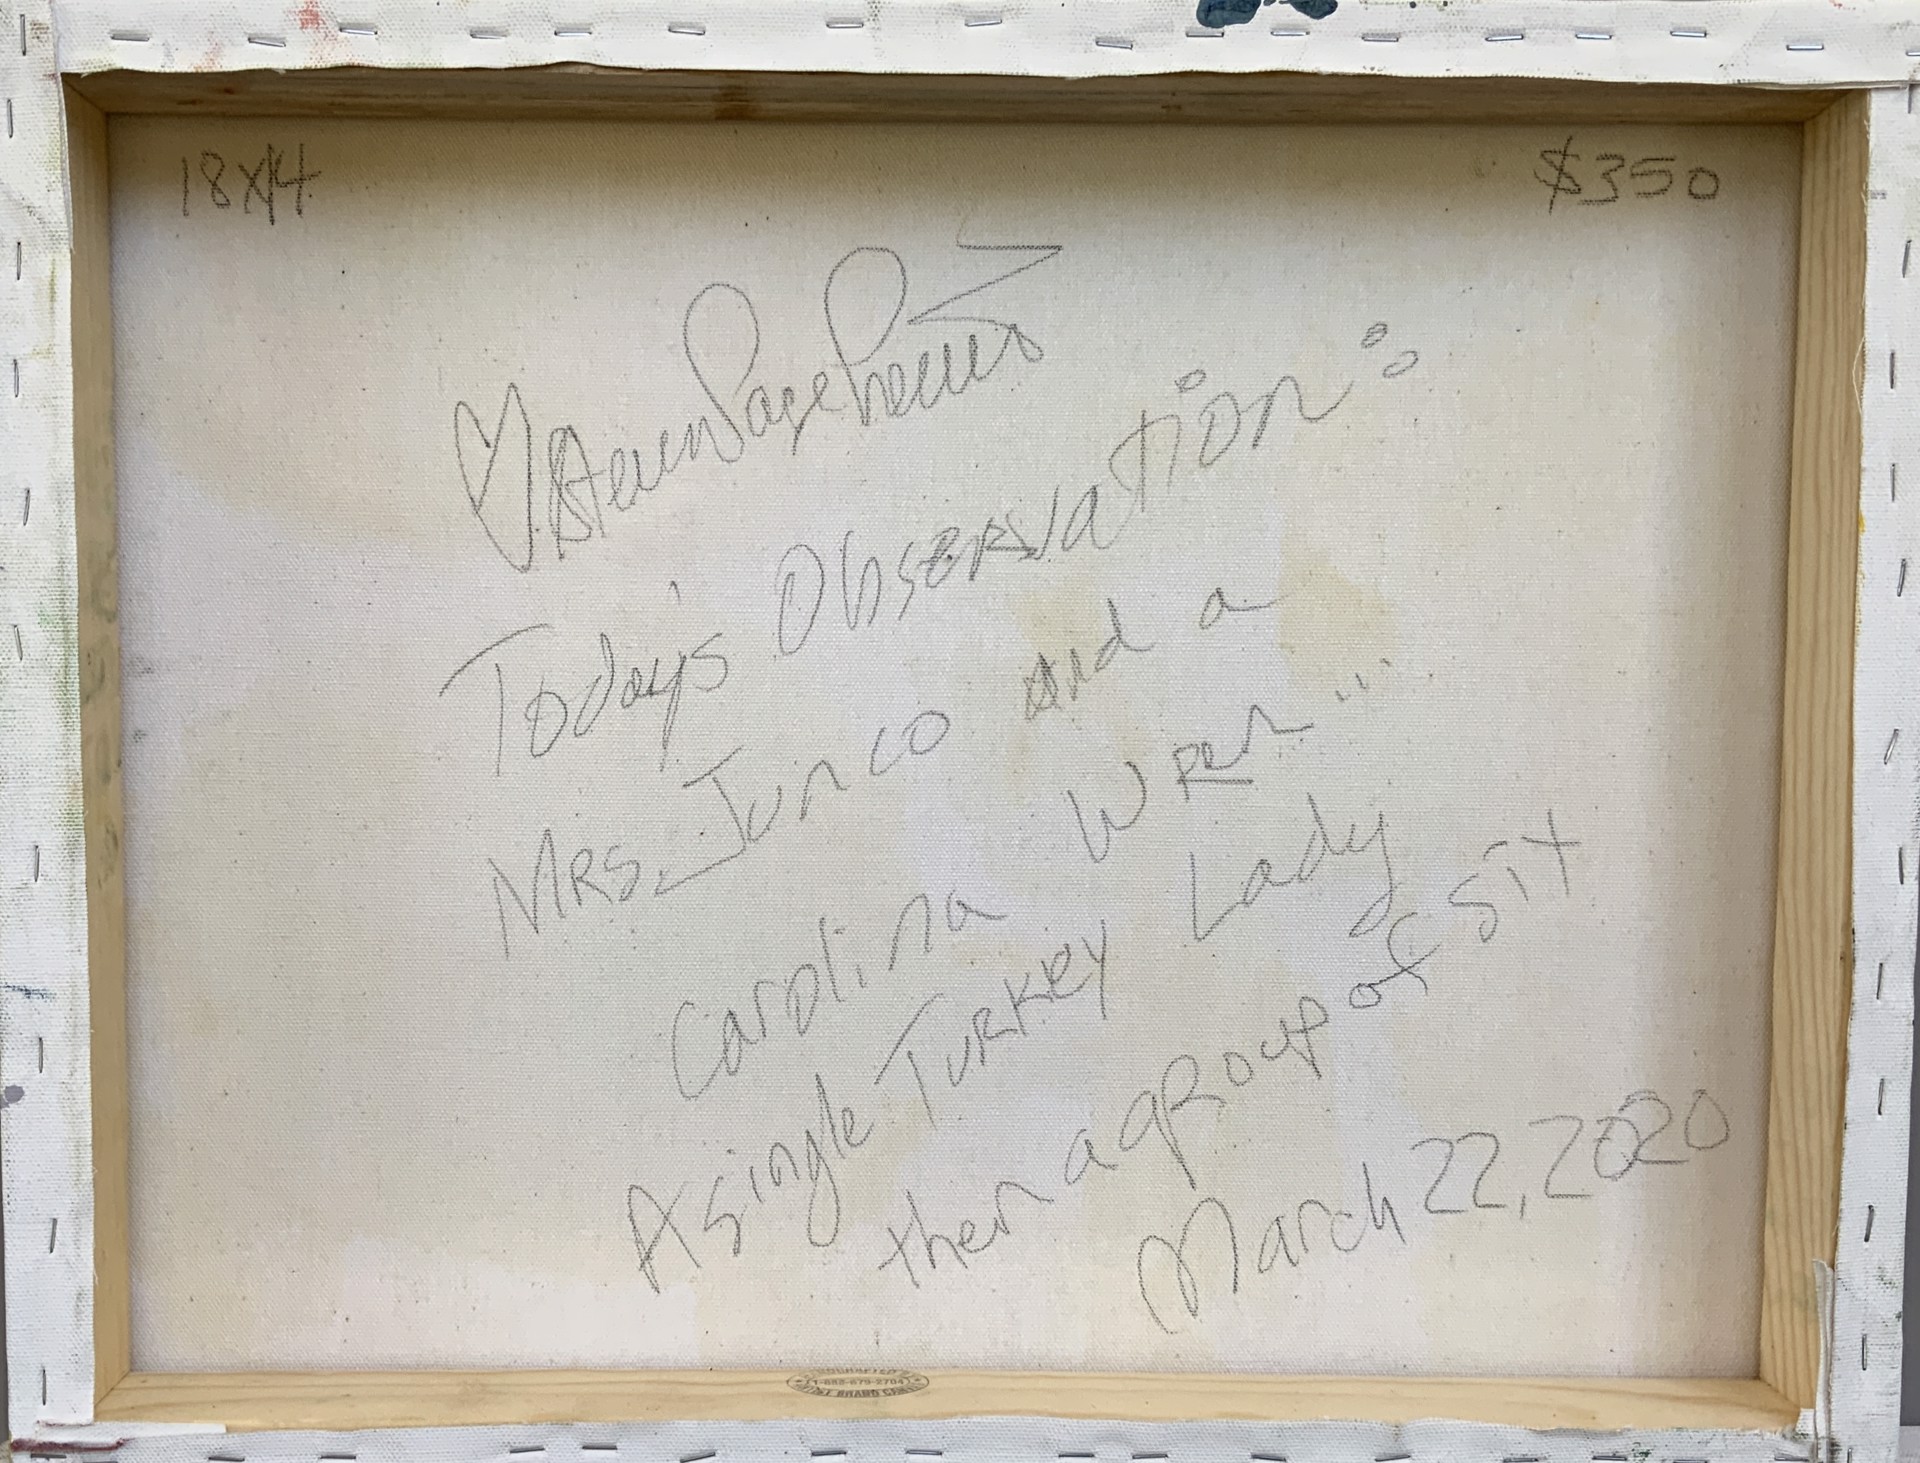 18x14
$350
♡ Steven Page Prewitt
Today's Observation:
Mrs. Junco and a
Carolina Wren...
A single Turkey Lady
then a group of six
March 22, 2020
1-882-679-2704